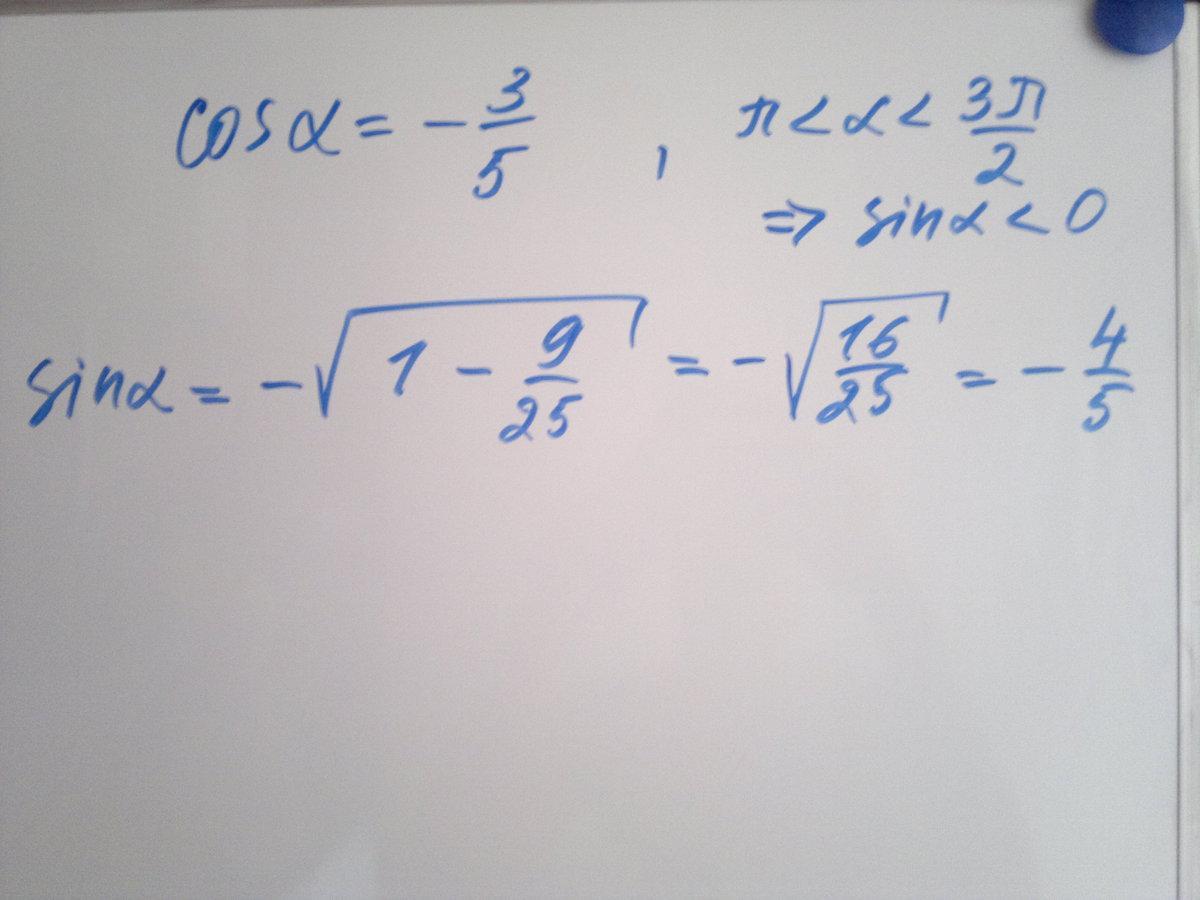 cosα = - 3/5 , π < α < 3π/2
⇒ sinα < 0
sinα = -√(1 - 9/25) = -√(16/25) = - 4/5